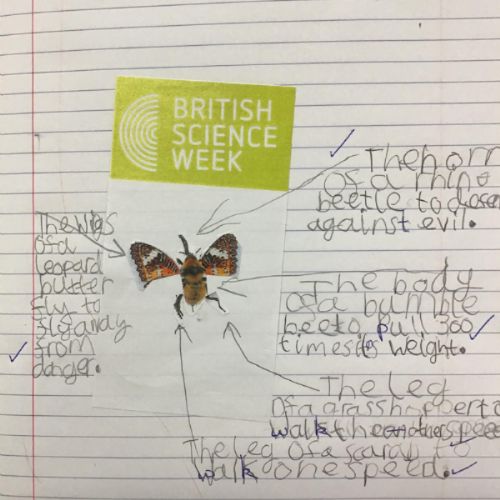 BRITISH
SCIENCE
WEEK
The horn
of a rhino
beetle to
against evil.
The wigs
of a
leopard
butter
fly to
fly
from
danger.
The body
of a bumble
bee to pull 300
times its weight.
The leg
of a grasshopper to
walk
The leg of a scarab to
walk one speed.